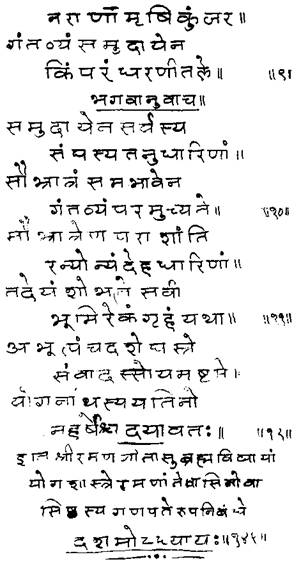 नराणामृषिकुंजर॥
गंतव्यं समुदायेन
किं परं धरणीतले॥ ॥९॥
भगवानुवाच॥
समुदायेन सर्वस्य
संघस्य तनुधारिणां॥
सौभ्रात्रं समभावेन
गंतव्यं परमुच्यते॥ ॥१०॥
सौभ्रात्रेण परा शांति
रन्योन्यं देहधारिणां॥
तदेयं शोभते सर्वा
भूमिरेकं गृहं यथा॥ ॥११॥
अभूत्पंचदशे घस्रे
संवादस्सोयमष्टमे।
योगनाथस्य यतिनो
महर्षेश्च दयावतः॥ ॥१२॥
इति श्रीरमणगीतासु ब्रह्मविद्यायां
योगशास्त्रे रमणांतेवासिनो वा
सिष्ठस्य गणपतेरुपनिबंधे
दशमोऽध्यायः॥